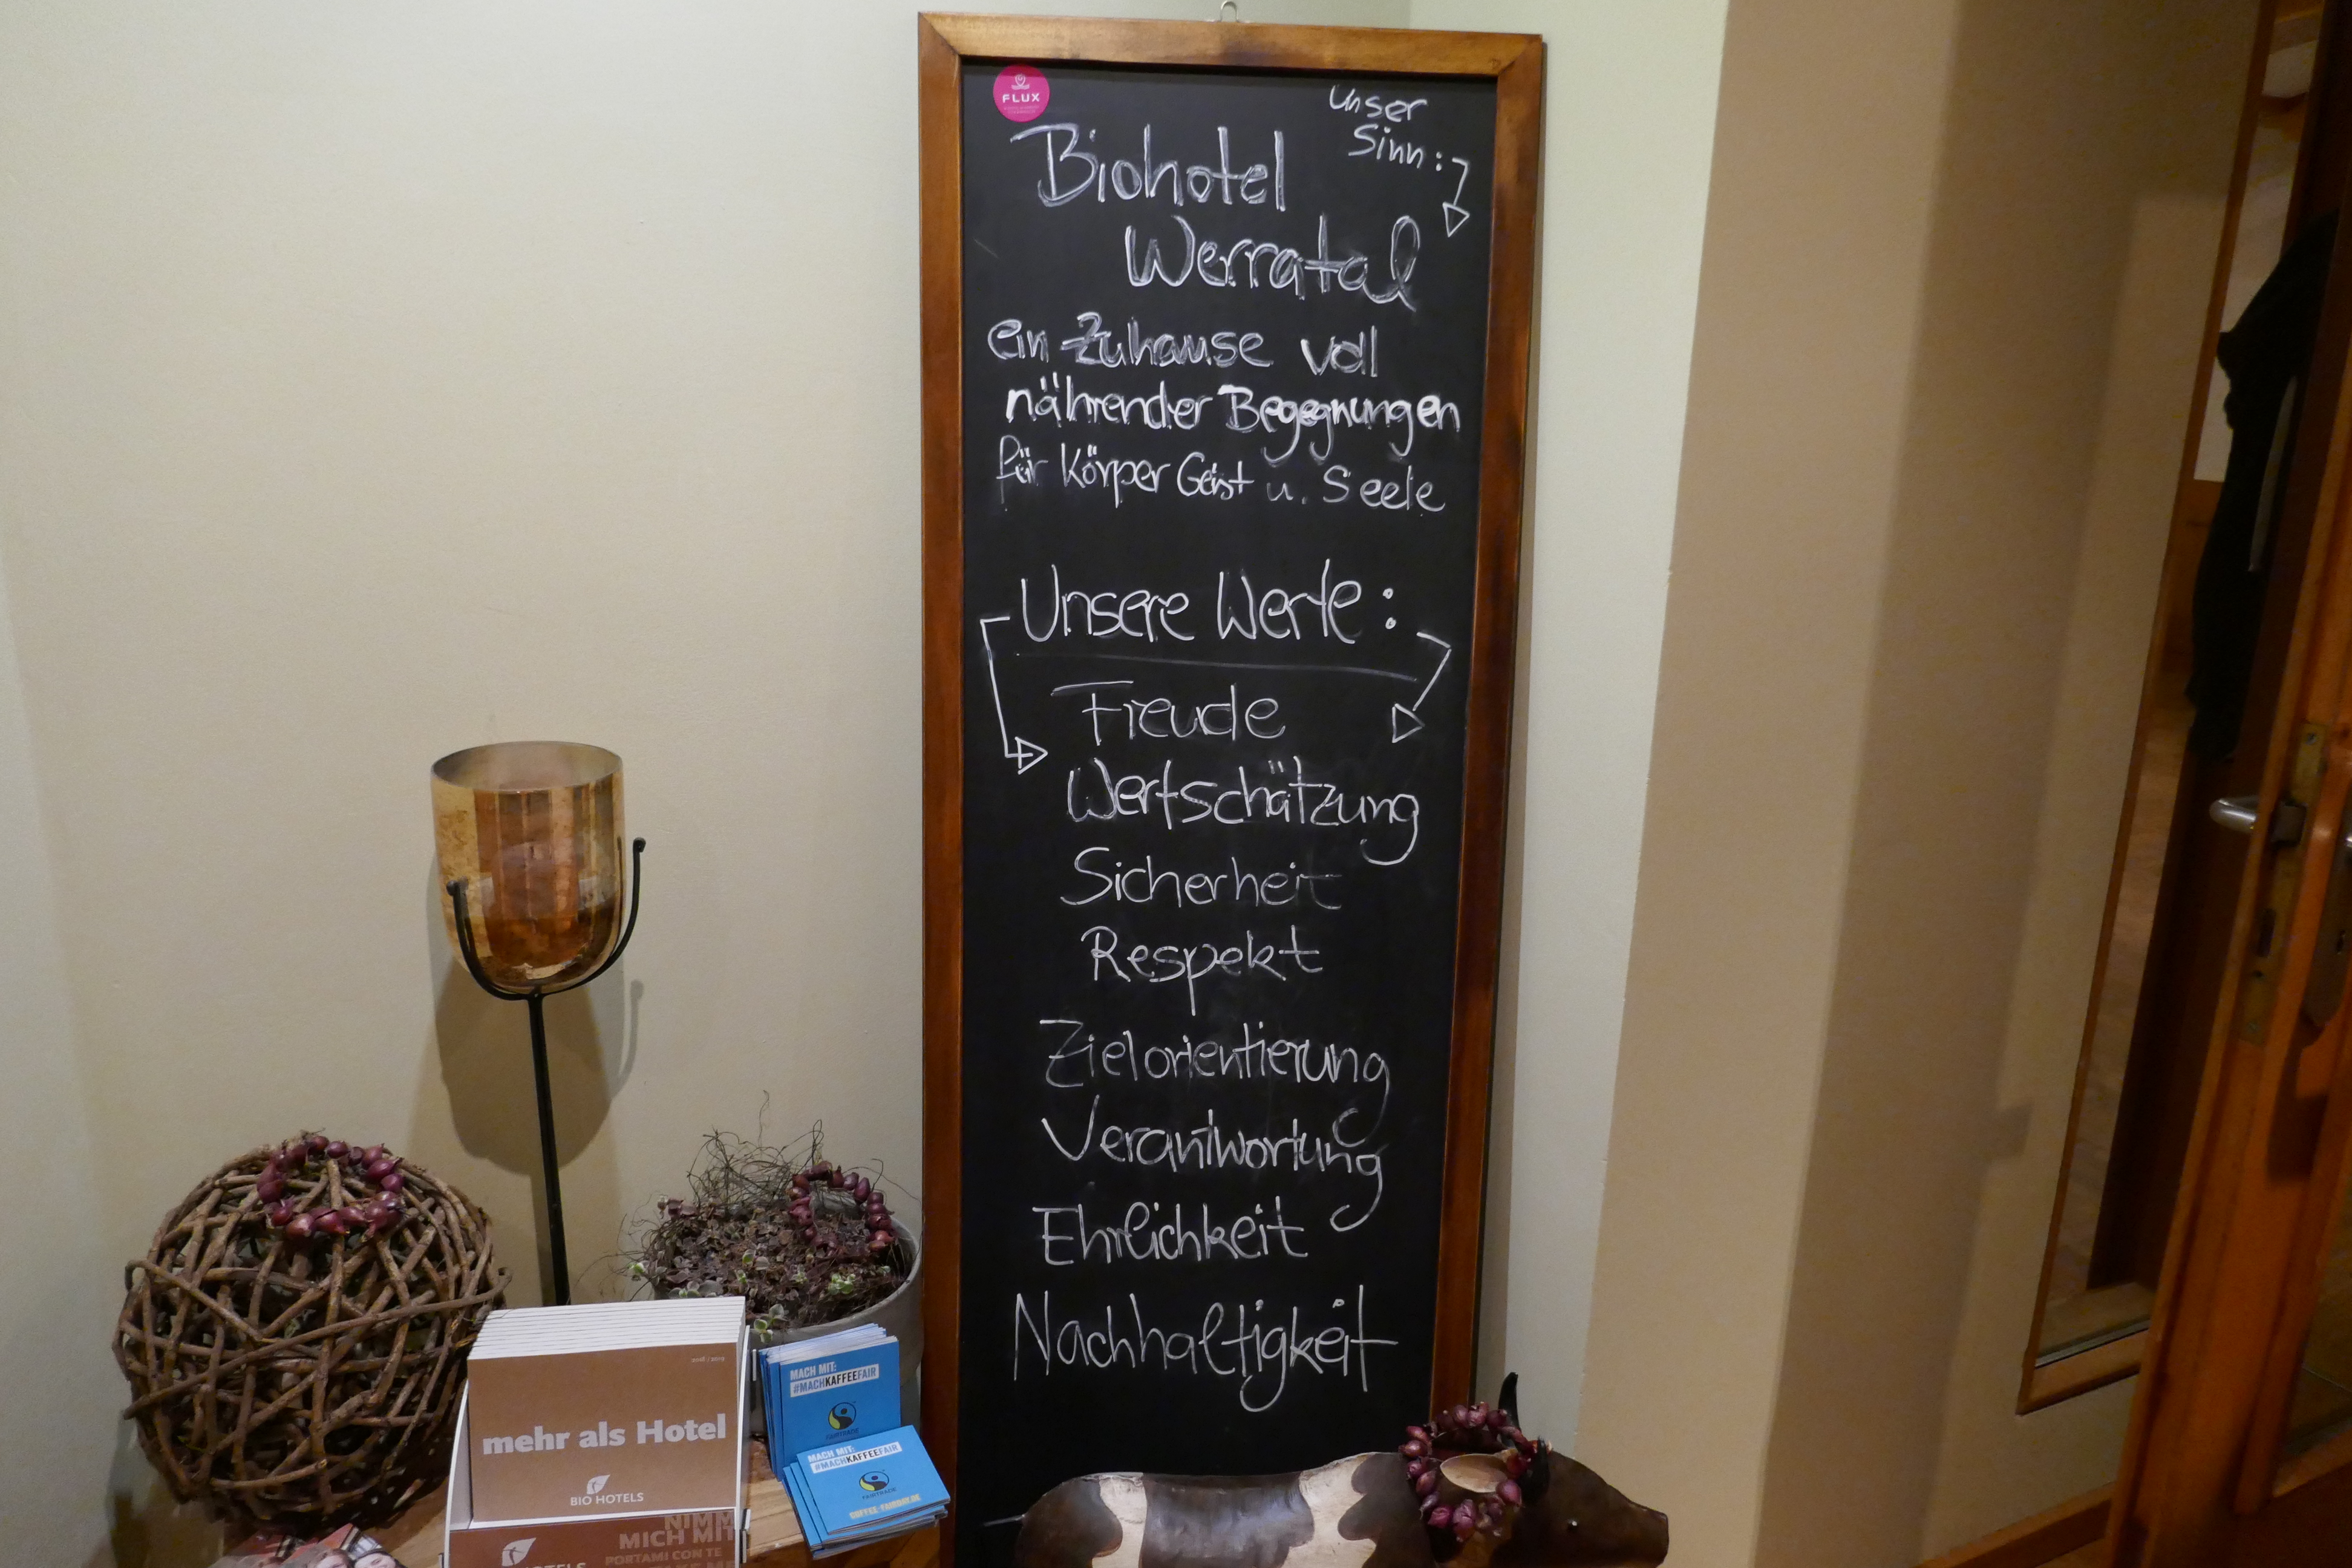 FLUX
Unser
Sinn:
Biohotel
Werratal
ein Zuhause voll
nährender Begegnungen
für Körper Geist u. Seele
Unsere Werte:
Freude
Wertschätzung
Sicherheit
Respekt
Zielorientierung
Verantwortung
Ehrlichkeit
Nachhaltigkeit
2018 / 2019
mehr als Hotel
BIO HOTELS
NIMM
MICH MIT
PORTAMI CON TE
HOTELS
MACH MIT:
#MACHKAFFEEFAIR
FAIRTRADE
MACH MIT:
#MACHKAFFEEFAIR
FAIRTRADE
COFFEE-FAIRDAY.DE